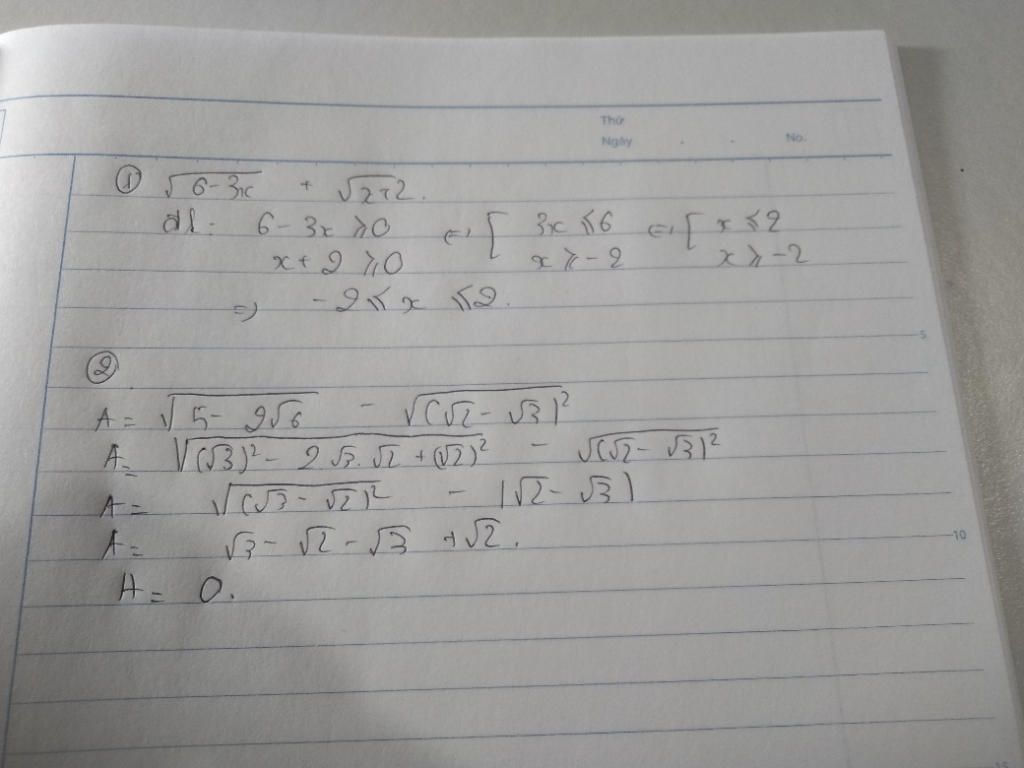 Thứ
Ngày . . No.
① √(6-3x) + √(x+2).
đk: 6-3x ≥ 0 ⇔ [ 3x ≤ 6 ⇔ [ x ≤ 2
x+2 ≥ 0 x ≥ -2 x ≥ -2
=> -2 ≤ x ≤ 2.
5
②
A = √(5-2√6) - √((√2-√3)²)
A = √((√3)²-2√3.√2+(√2)²) - √((√2-√3)²)
A = √((√3-√2)²) - |√2-√3|
A = √3-√2-√3+√2.
10
A = 0.
15